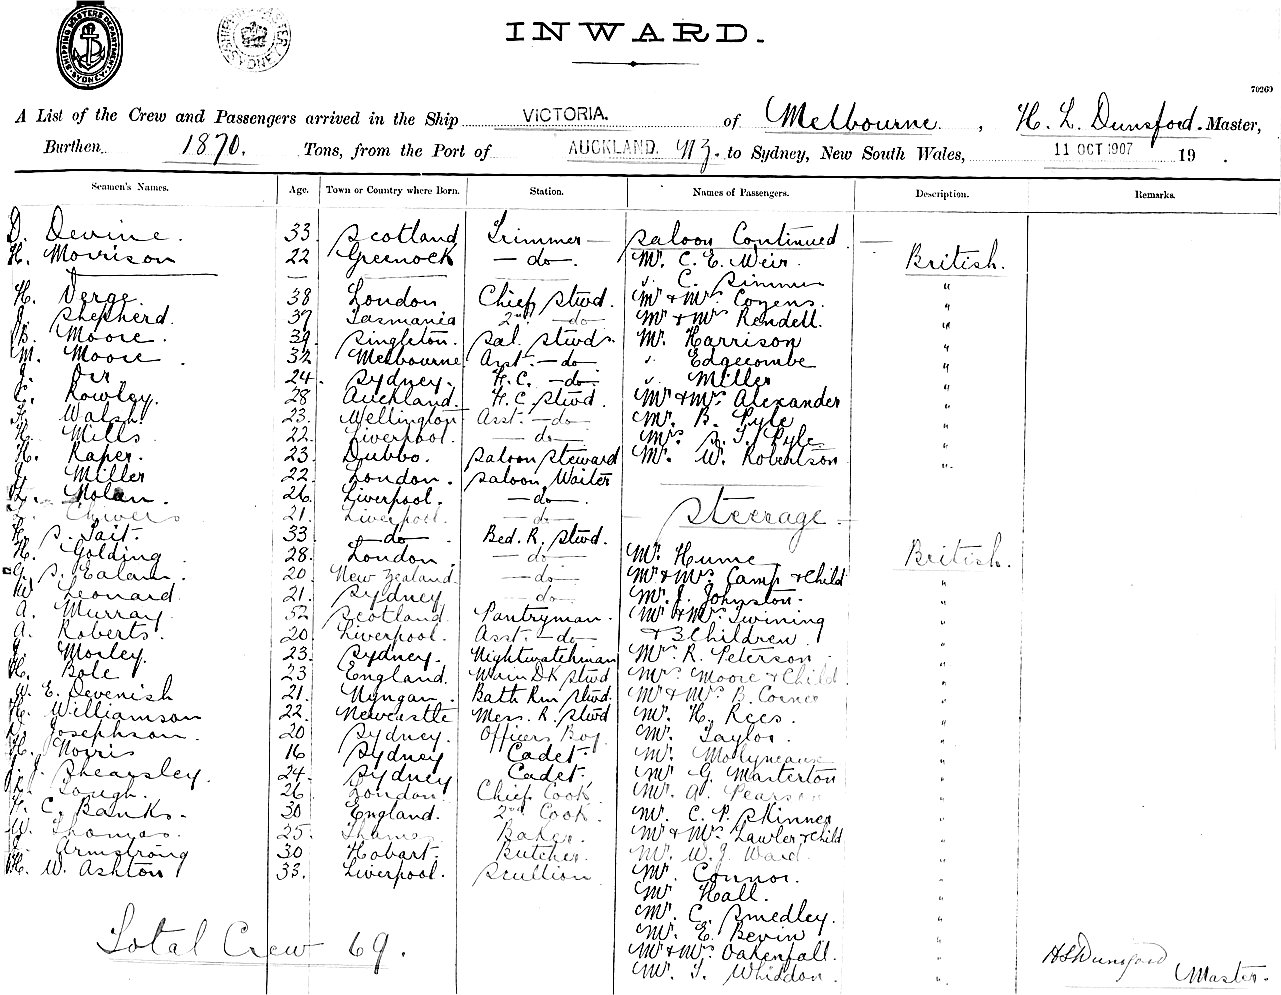 SHIPPING MASTERS DEPARTMENT SYDNEY
INWARD.
70269
A List of the Crew and Passengers arrived in the Ship VICTORIA. of Melbourne, H. L. Dunsford. Master,
Burthen 1870. Tons, from the Port of AUCKLAND. NZ. to Sydney, New South Wales, 11 OCT 1907 19 .
Seamen's Names. Age. Town or Country where Born. Station. Names of Passengers. Description. Remarks.
D. Devine. 33 Scotland Trimmer — Saloon Continued
H. Morrison 22 Greenock — do — Mr. C. E. Weir. British.
" C. "
H. Verge. 38 London Chief Stwd. Mr & Mrs Cozens. "
Shepherd. 37 Tasmania 2nd — do Mr & Mrs Rendell. "
B. Moore. 39 Singleton. Sal. Stwds. Mr. Harrison "
M. Moore 32 Melbourne Asst. — do " Edgecombe "
J. Orr 24. Sydney. F.C. — do " Miller "
Rowley. 28 Auckland. F.C. Stwd. Mr & Mrs Alexander "
Walsh 23. Wellington Asst. — do Mr. B. Pyle "
Mills 22. Liverpool. — do — Mrs. Pyle "
H. Raper. 23 Dubbo. Saloon Steward Mr. W. Robertson "
J. Miller 22. London. Saloon Waiter
Nolan. 26 Liverpool. — do —
Chivers 21. Liverpool. — do — Steerage
H. S. Tait. 33 — do — Bed. R. Stwd.
H. Golding 28. London — do — Mr. Hume British.
S. Ealam. 20. New Zealand. — do — Mr & Mrs Camp & Child "
W. Leonard 21. Sydney — do — Mr. J. Johnston. "
A. Murray 52 Scotland. Pantryman. Mr & Mrs Twining "
A. Roberts. 20 Liverpool. Asst. — do — & 3 Children "
Morley. 23. Sydney. Nightwatchman Mr. R. Peterson "
H. Bole 23 England. Main DK Stwd Mrs Moore & Child. "
W. E. Devenish 21. Nyngan. Bath Rm Stwd. Mr & Mrs B. Corner "
H. Williamson 22. Newcastle Mess. R. Stwd Mr. H. Rees. "
Josephson. 20 Sydney. Officers Boy Mr. Taylor. "
H. Norris 16 Sydney Cadet. Mr. Molyneaux "
J. J. Shearsley. 24. Sydney Cadet. Mr G. Masterton "
Gough. 26 London Chief Cook Mr. A. Pearson "
F. C. Banks. 30 England. 2nd Cook. Mr. C. P. Skinner "
W. Thomas. 25. Thames Baker. Mr & Mrs Lawler & Child "
J. Armstrong 30 Hobart. Butcher. Mr. W. J. Ward. "
H. W. Ashton 33. Liverpool. Scullion Mr. Connor. "
Mr Hall. "
Mr. C. Smedley. "
Total Crew 69. Mr. E. Bevin "
Mr & Mrs Oakenfall. "
Mr. T. Whiddon. "
H L Dunsford Master.